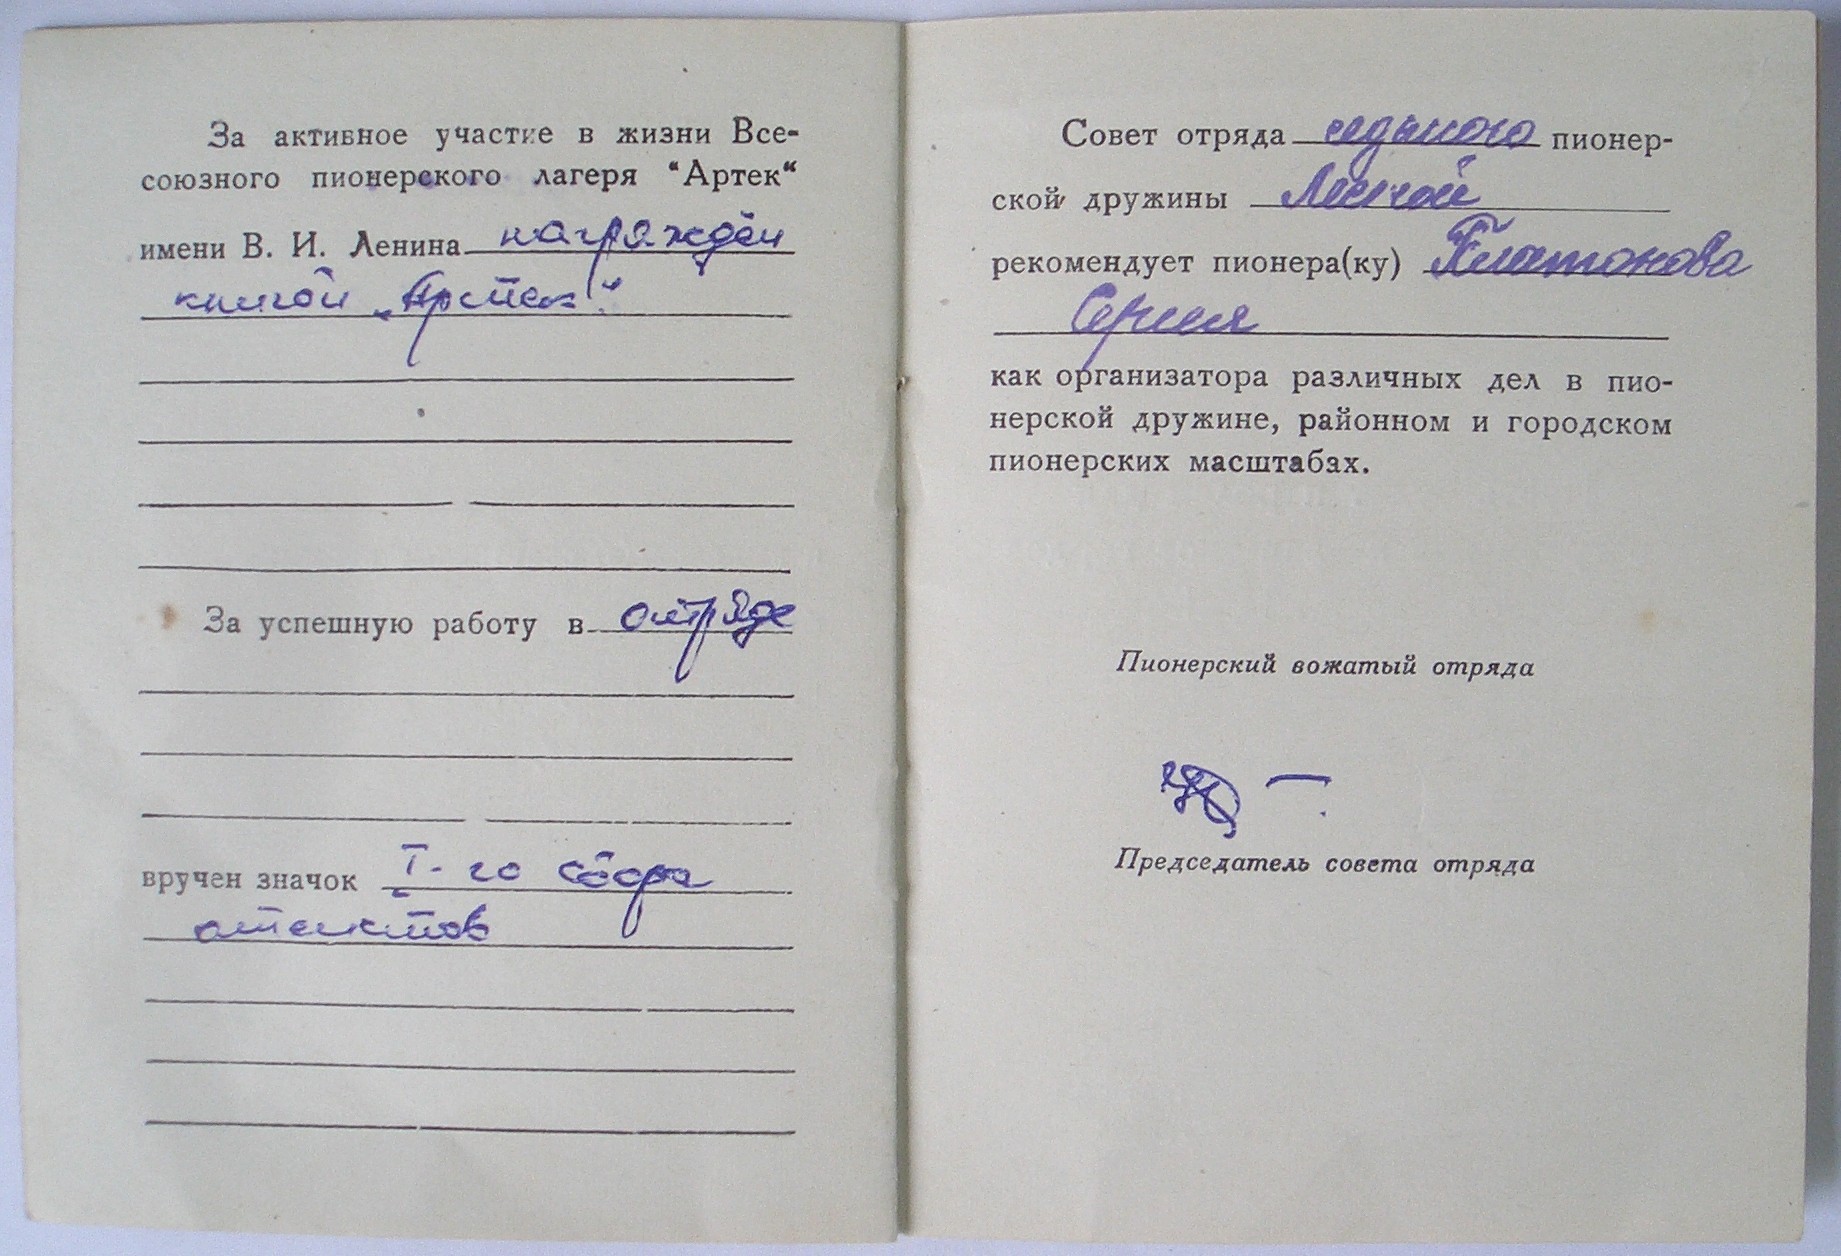 За активное участие в жизни Все-
союзного пионерского лагеря "Артек"
имени В. И. Ленина награждён
книгой „Артек".
За успешную работу в отряде
вручен значок I-го сбора
атеистов
Совет отряда седьмого пионер-
ской дружины Лесной
рекомендует пионера(ку) Платонова
Сергея
как организатора различных дел в пио-
нерской дружине, районном и городском
пионерских масштабах.
Пионерский вожатый отряда
Председатель совета отряда